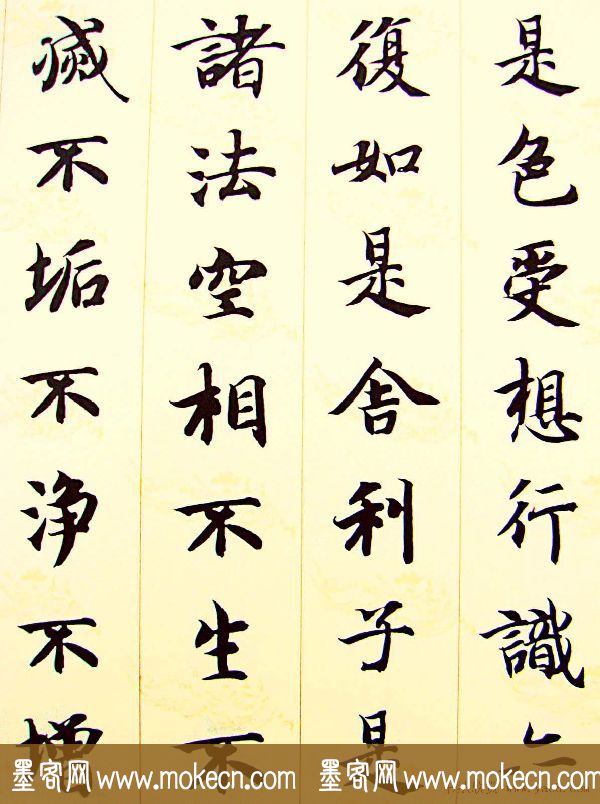 是色受想行識亦
復如是舍利子是
諸法空相不生不
滅不垢不浄不增
墨客网 www.mokecn.com 墨客网 www.mokecn.com